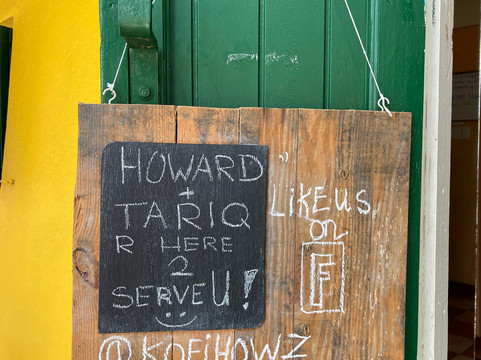 HOWARD
+
TARIQ
R HERE
2
SERVE U!
LiKE us
on
F
@KOFiHOWZ